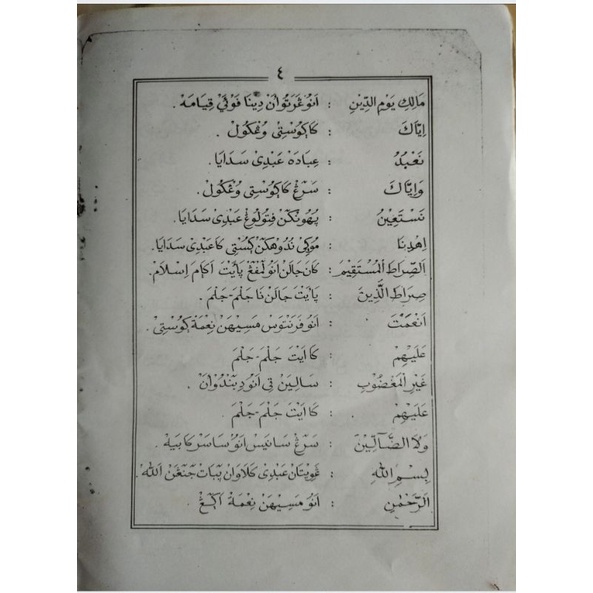 ٤
مَالِكِ يَوْمِ الدِّيْنِ : اَنُو مَرَنْتَوْانْ دِيْنَا فَوٓئَ قِيَامَةْ.
اِيَّاكَ : كَا ڮُوْسْتِيْ وُڠْكُولْ.
نَعْبُدُ : عِبَادَهْ عَبْدِيْ سَدَايَا.
وَاِيَّاكَ : سَرْڠْ كَا ڮُوْسْتِيْ وُڠْكُولْ.
نَسْتَعِيْنُ : پُهُوْنْكَنْ فِتُولُوْڠْ عَبْدِيْ سَدَايَا.
اِهْدِنَا : مُوڮِيْ نُدُوْهكَنْ ڮُسْتِيْ كَا عَبْدِيْ سَدَايَا.
اَلصِّرَاطَ الْمُسْتَقِيْمَ : كَانَ جَالَنْ اَنُو لمڤڠ پَاٸِيْتَ اَڮَامَ اِسْلَامْ.
صِرَاطَ الَّذِيْنَ : پَاٸِيْتَ جَالَنْ نَا جَلْمَ-جَلْمَ.
اَنْعَمْتَ : اَنُو فَرَنْتَوْسْ مَسِيْهَنْ نِعْمَةْ ڮُوسْتِيْ.
عَلَيْهِمْ : كَا اَيْتَ جَلْمَ-جَلْمَ
غَيْرِ الْمَغْضُوْبِ : سَالِيَنْ تِيْ اَنُو دِبَنْدُوْانْ.
عَلَيْهِمْ : كَا اَيْتَ جَلْمَ-جَلْمَ.
وَلَا الضَّآلِّيْنَ : سَرْڠْ سَانَيْسْ اَنُو سَاسَرْ كَابِيهْ.
بِسْمِ اللهِ : عَبْدِيْ كَلَاوَانْ پَبَاتْ جَنْڠَنْ اَللهْ.
اَلرَّحْمٰنِ : اَنُو مَسِيْهَنْ نِعْمَةْ اَڮَڠْ.